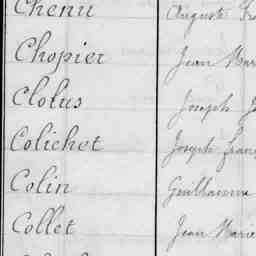 Chenu Auguste
Chopier Jean
Clotus Joseph
Colichet Joseph
Colin Guillaume
Collet Jean Marie